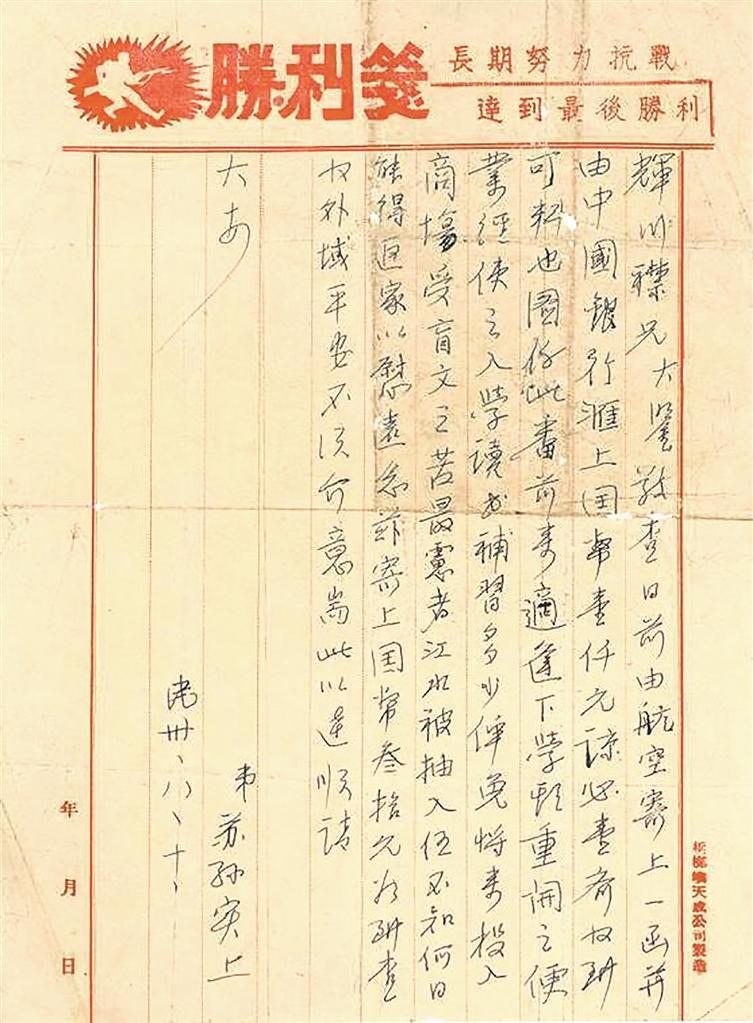 勝利箋
長期努力抗戰
達到最後勝利
輝川襟兄大鑒敬查日前由航空寄上一函并
由中國銀行滙上国幣壹仟元諒必查齐收
可知也國係此番前来適逢下學期重開之便
業經使之入學讀書補習多少俾免将来投入
商場受盲文之苦最慮者江水被抽入伍不知何日
能得返家以慰遠念兹寄上国幣叁拾元欠到查
收外域平安不須介意耑此以達順請
大安
弟 苏孙实上
民卅、八、十、
年 月 日
檳榔嶼天成公司製造